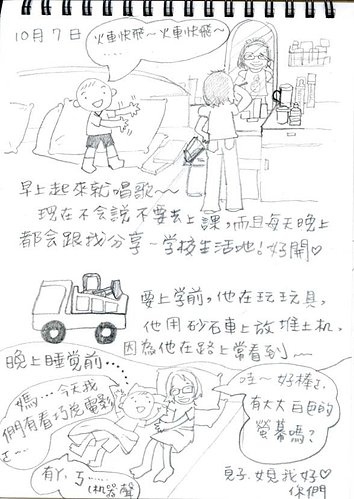 10月7日
火車快飛~火車快飛~
早上起來就唱歌~~
現在不會說不要去上課,而且每天晚上
都會跟我分享~學校生活地!好開♡
要上學前,他在玩玩具,
他用砂石車上放堆土机,
因為他在路上常看到~~
晚上睡覺前.....
媽....今天我
們有看巧虎電影
ㄜ...
哇~好棒ㄛ
有大大白色的
螢幕嗎?
有ㄚ,ㄎ....
(机器聲)
兒子.媳
我好♡
你們